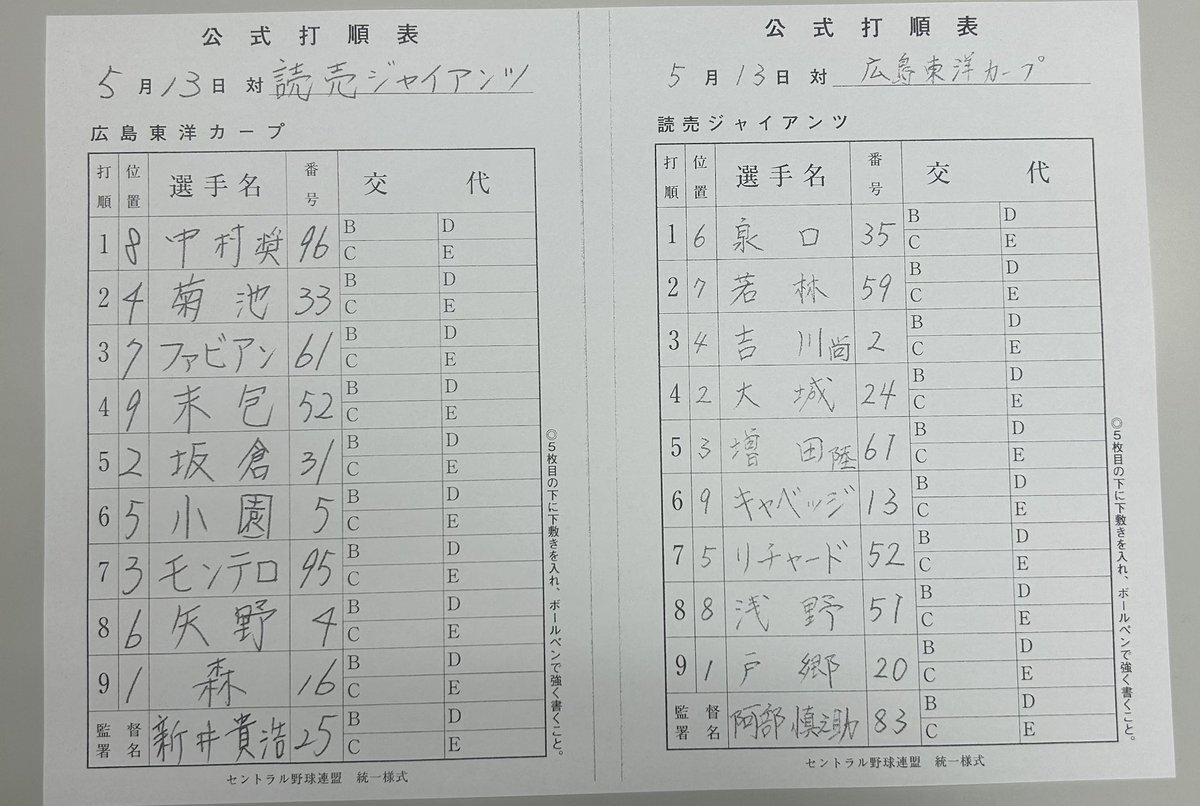 公式打順表
5月13日 対 読売ジャイアンツ
広島東洋カープ
打順 位置 選手名 番号 交代
1 8 中村奨 96 B D C E
2 4 菊池 33 B D C E
3 7 ファビアン 61 B D C E
4 9 末包 52 B D C E
5 2 坂倉 31 B D C E
6 5 小園 5 B D C E
7 3 モンテロ 95 B D C E
8 6 矢野 4 B D C E
9 1 森 16 B D C E
監督署名 新井貴浩 25 B D C E
◎5枚目の下に下敷きを入れ、ボールペンで強く書くこと。
セントラル野球連盟 統一様式
公式打順表
5月13日 対 広島東洋カープ
読売ジャイアンツ
打順 位置 選手名 番号 交代
1 6 泉口 35 B D C E
2 7 若林 59 B D C E
3 4 吉川尚 2 B D C E
4 2 大城 24 B D C E
5 3 増田陸 61 B D C E
6 9 キャベッジ 13 B D C E
7 5 リチャード 52 B D C E
8 8 浅野 51 B D C E
9 1 戸郷 20 B D C E
監督署名 阿部慎之助 83 B D C E
◎5枚目の下に下敷きを入れ、ボールペンで強く書くこと。
セントラル野球連盟 統一様式